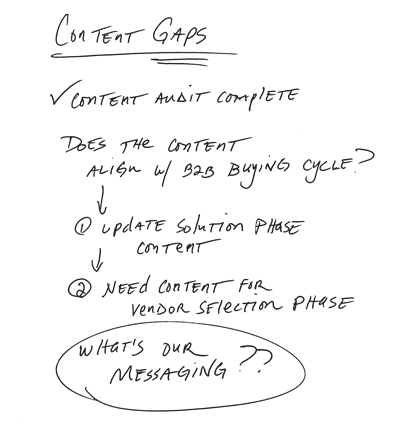 CONTENT GAPS
✓ CONTENT AUDIT COMPLETE
DOES THE CONTENT
ALIGN W/ B2B BUYING CYCLE?
① UPDATE SOLUTION PHASE
CONTENT
② NEED CONTENT FOR
VENDOR SELECTION PHASE
WHAT'S OUR
MESSAGING??